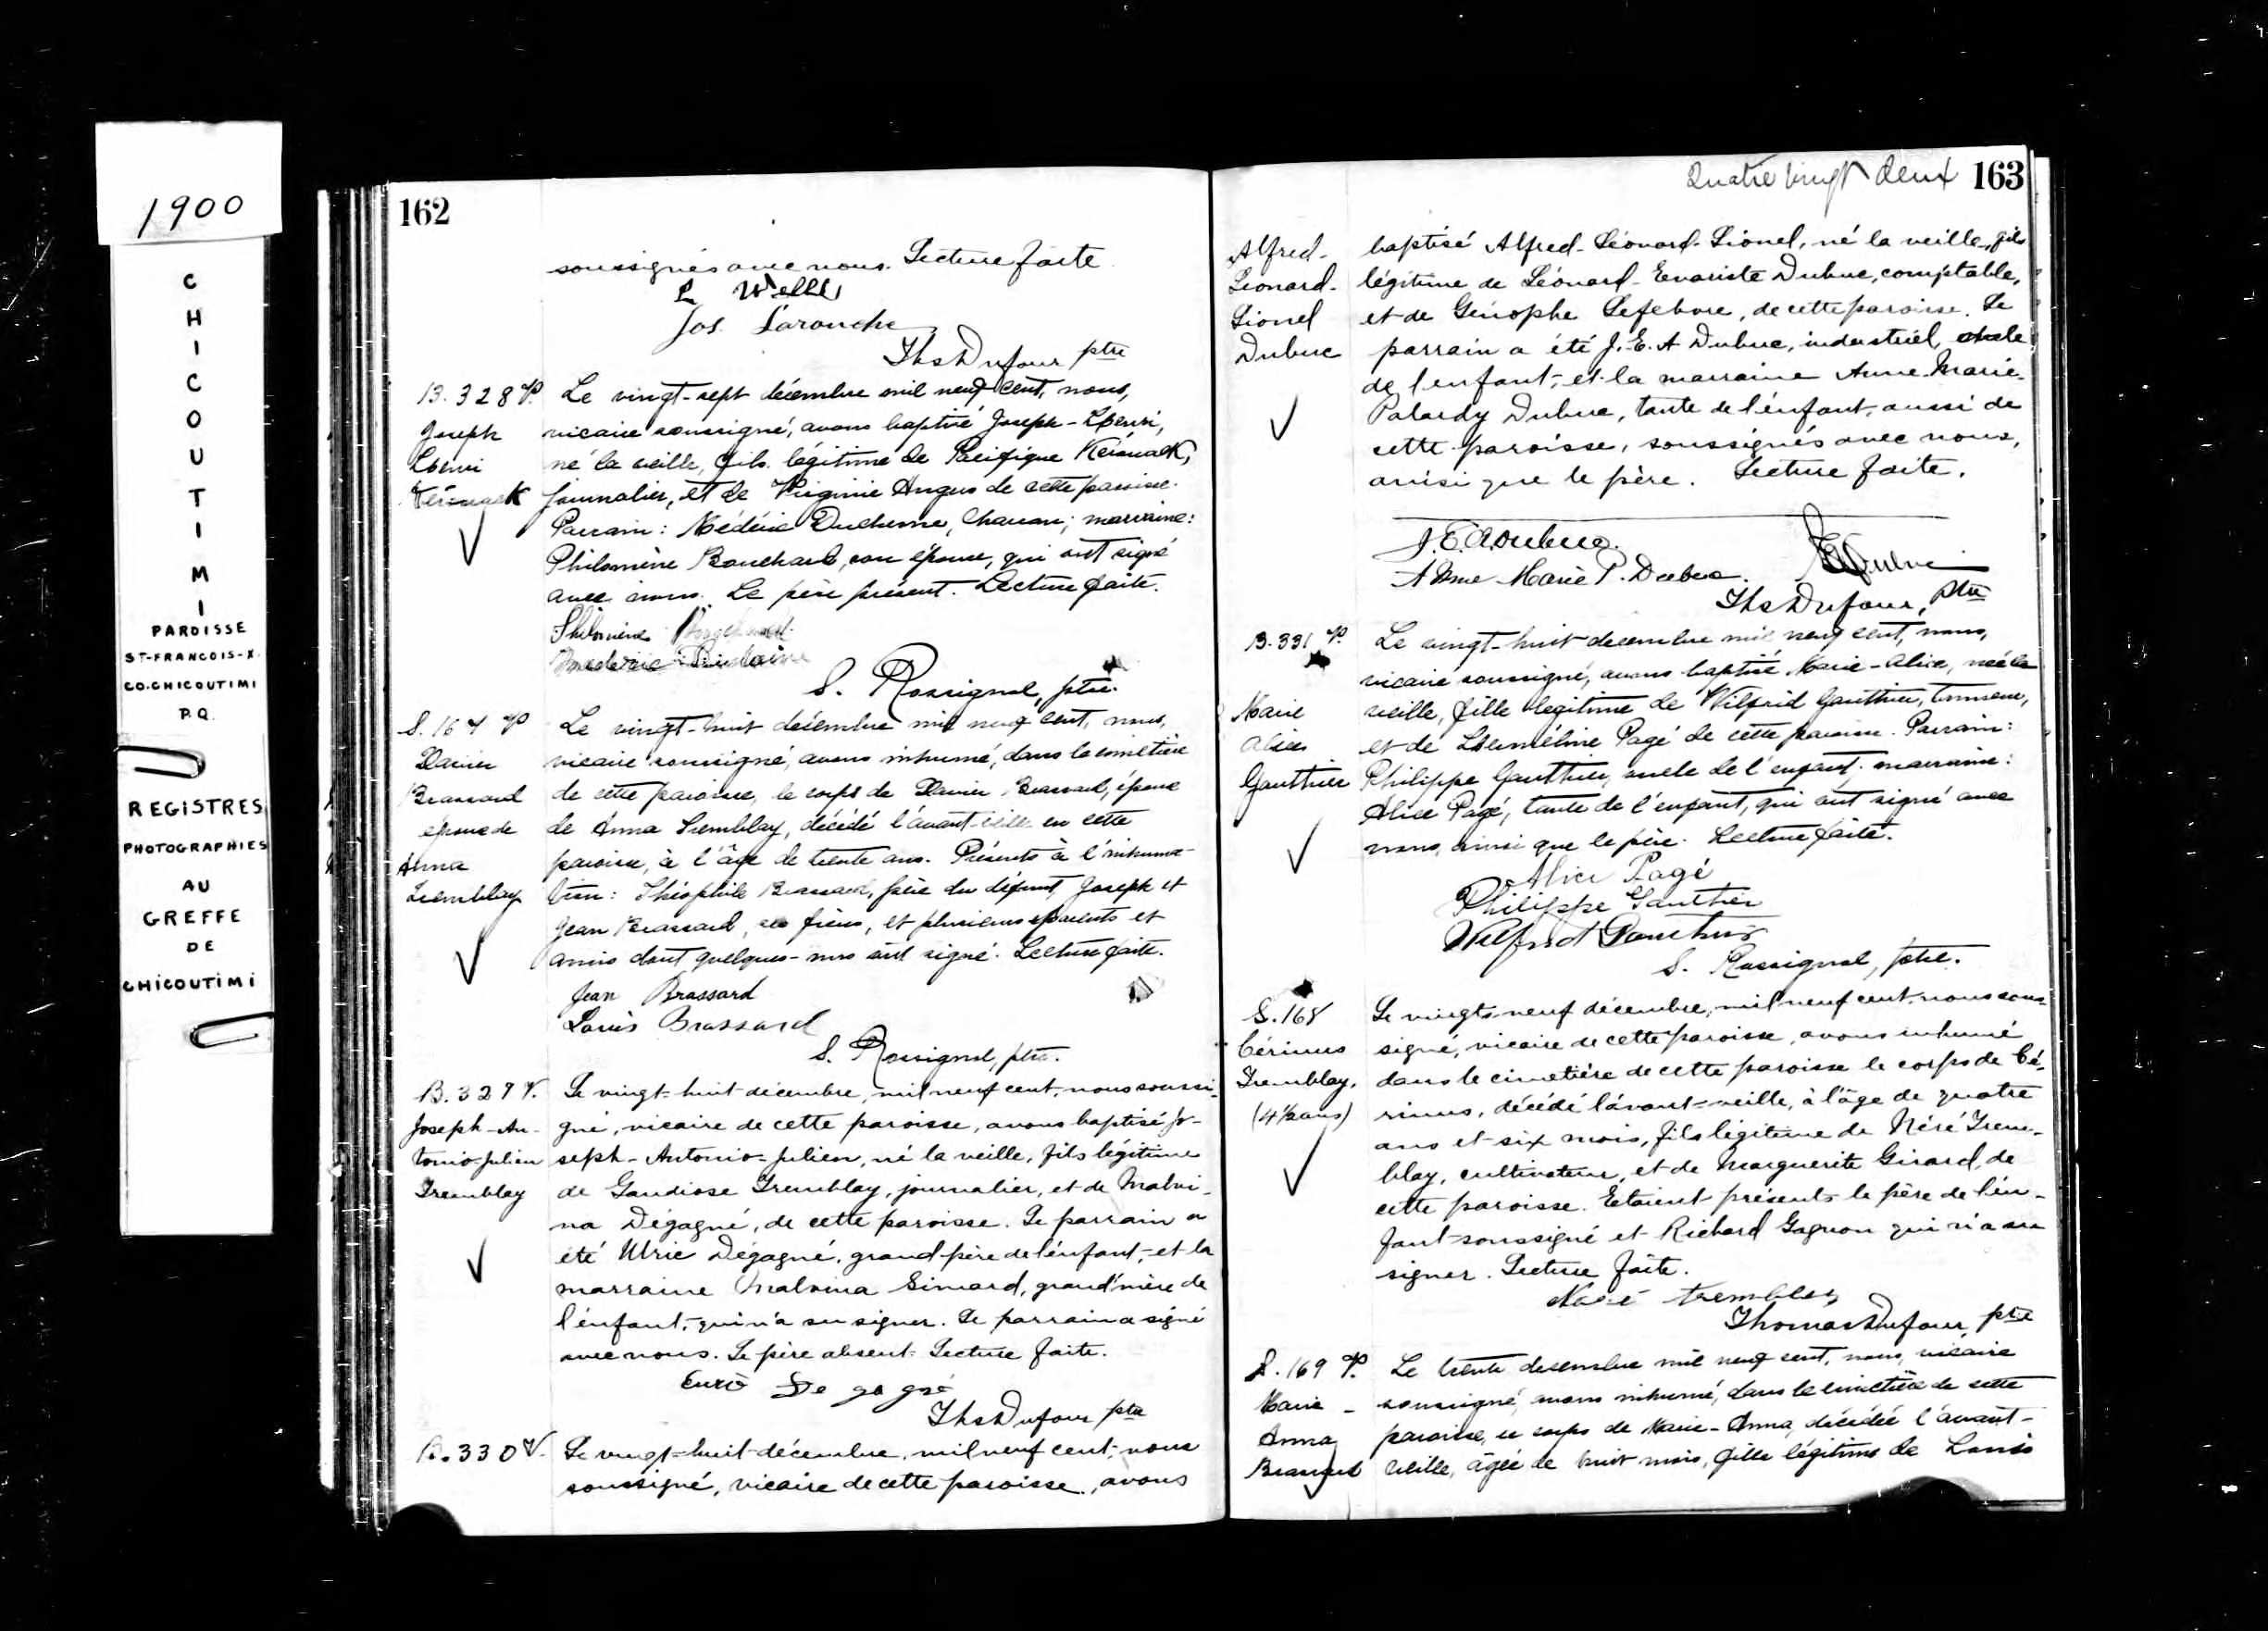 1900
C
H
I
C
O
U
T
I
M
I
PAROISSE
ST-FRANCOIS-X.
CO. CHICOUTIMI
P.Q.
REGISTRES
PHOTOGRAPHIES
AU
GREFFE
DE
CHICOUTIMI
162
soussignés avec nous. Lecture faite.
Jos. Larouche
Ths Dufour ptre
B. 328
Joseph
Henri
Kérouack
Le vingt-sept décembre mil neuf cent, nous,
vicaire soussigné, avons baptisé Joseph-Henri,
né la veille, fils légitime de Pacifique Kérouack,
journalier, et de Virginie Angus de cette paroisse.
Parrain: Médéric Duchesne, marraine:
Philomène Bouchard, son épouse, qui ont signé
avec nous. Le père présent. Lecture faite.
Philomène
S. Rossignol, ptre.
S. 167
Xavier
Brassard
époux de
Anna
Tremblay
Le vingt-huit décembre mil neuf cent, nous,
vicaire soussigné, avons inhumé, dans le cimetière
de cette paroisse, le corps de Xavier Brassard, époux
de Anna Tremblay, décédé l'avant-veille en cette
paroisse, à l'âge de trente ans. Présents à l'inhuma-
tion: Théophile Brassard, père du défunt, Joseph et
Jean Brassard, ses frères, et plusieurs parents et
amis dont quelques-uns ont signé. Lecture faite.
Jean Brassard
Louis Brassard
S. Rossignol, ptre.
B. 329
Joseph-An-
tonio-Julien
Tremblay
Le vingt-huit décembre, mil neuf cent, nous soussi-
gné, vicaire de cette paroisse, avons baptisé Jo-
seph-Antonio-Julien, né la veille, fils légitime
de Gaudiose Tremblay, journalier, et de Malvi-
na Dégagné, de cette paroisse. Le parrain a
été Ulric Dégagné, grand-père de l'enfant, et la
marraine Malvina Simard, grand'mère de
l'enfant, qui n'a su signer. Le parrain a signé
avec nous. Le père absent. Lecture faite.
De ga gné
Ths Dufour ptre
B. 330
Le vingt-huit décembre, mil neuf cent, nous
soussigné, vicaire de cette paroisse, avons
Quatre vingt deux 163
Alfred-
Léonard-
Lionel
Dubuc
baptisé Alfred-Léonard-Lionel, né la veille, fils
légitime de Léonard-Evariste Dubuc, comptable,
et de Génophe Lefebvre, de cette paroisse. Le
parrain a été J.-E. A Dubuc, industriel, oncle
de l'enfant, et la marraine Anne-Marie-
Palardy Dubuc, tante de l'enfant, aussi de
cette paroisse, soussignés avec nous,
ainsi que le père. Lecture faite.
J. E. A. Dubuc.
Anne-Marie P. Dubuc.
Ths Dufour, ptre
B. 331
Marie
Alice
Gauthier
Le vingt-huit decembre mil neuf cent, nous,
vicaire soussigné, avons baptisé Marie-Alice, née la
veille, fille légitime de Wilfrid Gauthier,
et de Herméline Pagé de cette paroisse. Parrain:
Philippe Gauthier, oncle de l'enfant; marraine:
Alice Pagé, tante de l'enfant, qui ont signé avec
nous, ainsi que le père. Lecture faite.
Alice Pagé
Philippe Gauthier
Wilfrid Gauthier
S. Rossignol, ptre.
S. 168
Cérinus
Tremblay.
(4½ ans)
Le vingt-neuf décembre, mil neuf cent, nous sous-
signé, vicaire de cette paroisse, avons inhumé
dans le cimetière de cette paroisse le corps de Cé-
rinus, décédé l'avant-veille, à l'âge de quatre
ans et six mois, fils légitime de Néré Trem-
blay, cultivateur, et de Marguerite Girard, de
cette paroisse. Etaient présents le père de l'en-
fant soussigné et Richard Gagnon qui n'a su
signer. Lecture faite.
Tremblay
Thomas Dufour, ptre
S. 169
Marie-
Anna
Brassard
Le trente decembre mil neuf cent, nous, vicaire
soussigné, avons inhumé, dans le cimetière de cette
paroisse, le corps de Marie-Anna, décédée l'avant-
veille, âgée de huit mois, fille légitime de Louis